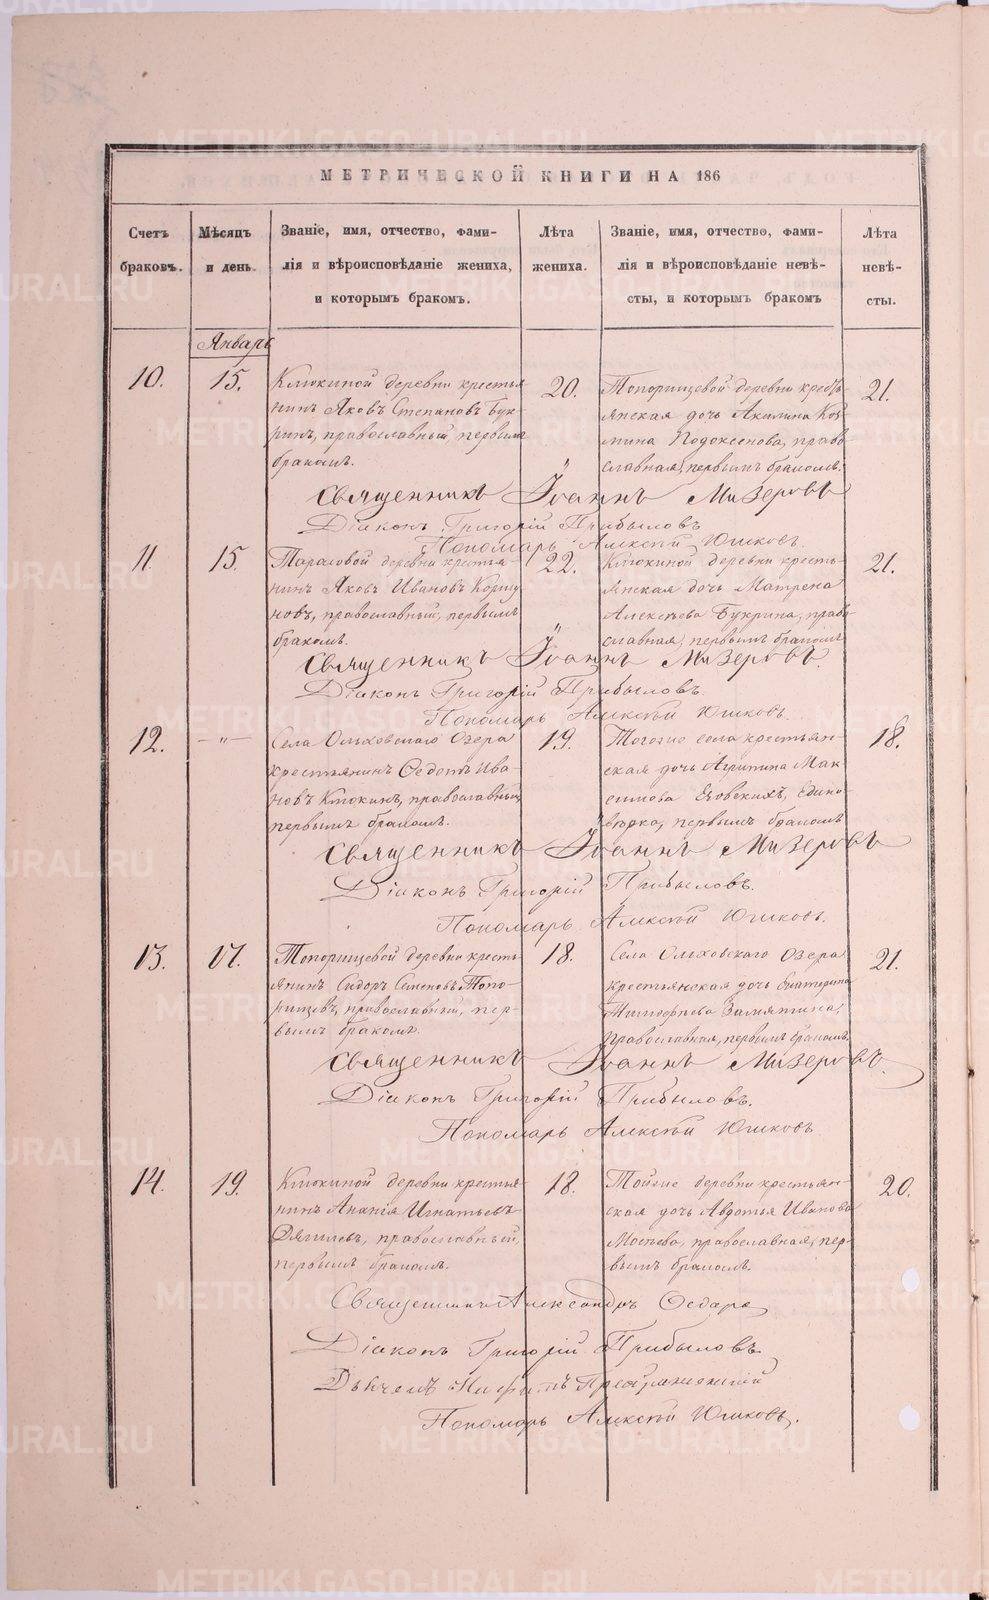 МЕТРИЧЕСКОЙ КНИГИ НА 186
Счетъ браковъ.
Мѣсяцъ и день.
Званіе, имя, отчество, фами-
лія и вѣроисповѣданіе жениха,
и которымъ бракомъ.
Лѣта жениха.
Званіе, имя, отчество, фами-
лія и вѣроисповѣданіе невѣ-
сты, и которымъ бракомъ
Лѣта невѣ-
сты.
Январь
10.
15.
Клюкиной деревни крестья
нинъ Яковъ Степановъ Бук-
ринъ, православный, первымъ
бракомъ.
20.
Топорищевой деревни крестъ-
янская дочь Акилина Коз
мина Подоксенова, право
славная, первымъ бракомъ.
21.
Священникъ Іоаннъ Мизеровъ
Діаконъ Григорій Прибыловъ
Пономарь Алексѣй Юшковъ.
11.
15.
деревни крестья-
нинъ Яковъ Ивановъ Коршу
новъ, православный, первымъ
бракомъ.
22.
Клюкиной деревни кресть-
янская дочь Матрена
Алексѣева Букрина, право
славная, первымъ бракомъ
21.
Священникъ Іоаннъ Мизеровъ.
Діаконъ Григорій Прибыловъ.
Пономарь Алексѣй Юшковъ.
12.
— " —
Села Ольховскаго Озера
крестьянинъ Федотъ Ива-
новъ Клюкинъ, православный
первымъ бракомъ.
19.
Тогоже села крестьян-
ская дочь Агрипина Мак-
симова Едино
вѣрка, первымъ бракомъ
18.
Священникъ Іоаннъ Мизеровъ
Діаконъ Григорій Прибыловъ.
Пономарь Алексѣй Юшковъ.
13.
17.
Топорищевой деревни кресть
янинъ Сидоръ Семеновъ Топо-
рищевъ, православный, пер-
вымъ бракомъ.
18.
Села Ольховскаго Озера
крестьянская дочь Екатерина
Тимофеева Замятина,
православная, первымъ бракомъ.
21.
Священникъ Іоаннъ Мизеровъ.
Діаконъ Григорій Прибыловъ.
Пономарь Алексѣй Юшковъ
14.
19.
Клюкиной деревни крестья-
нинъ Ананія Игнатьевъ
Дягилевъ, православный,
первымъ бракомъ.
18.
Тойже деревни крестьян-
ская дочь Авдотья Иванова
православная, пер-
вымъ бракомъ.
20.
Священникъ Александръ
Діаконъ Григорій Прибыловъ
Пономарь Алексѣй Юшковъ.
METRIKI.GASO-URAL.RU